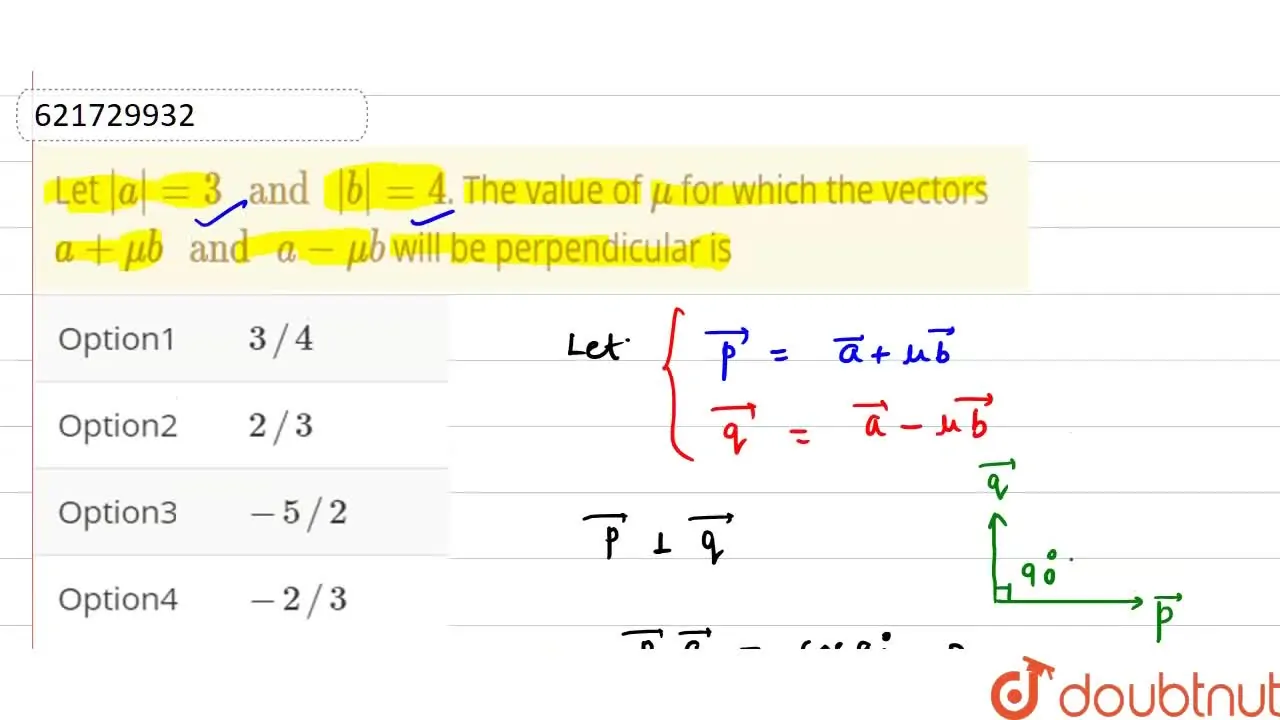 621729932
Let |a| = 3 and |b| = 4. The value of μ for which the vectors
a + μb and a − μb will be perpendicular is
Option1 3 / 4
Option2 2 / 3
Option3 − 5 / 2
Option4 − 2 / 3
Let
p⃗ = a⃗ + μb⃗
q⃗ = a⃗ − μb⃗
p⃗ ⊥ q⃗
q⃗
90°
p⃗
doubtnut